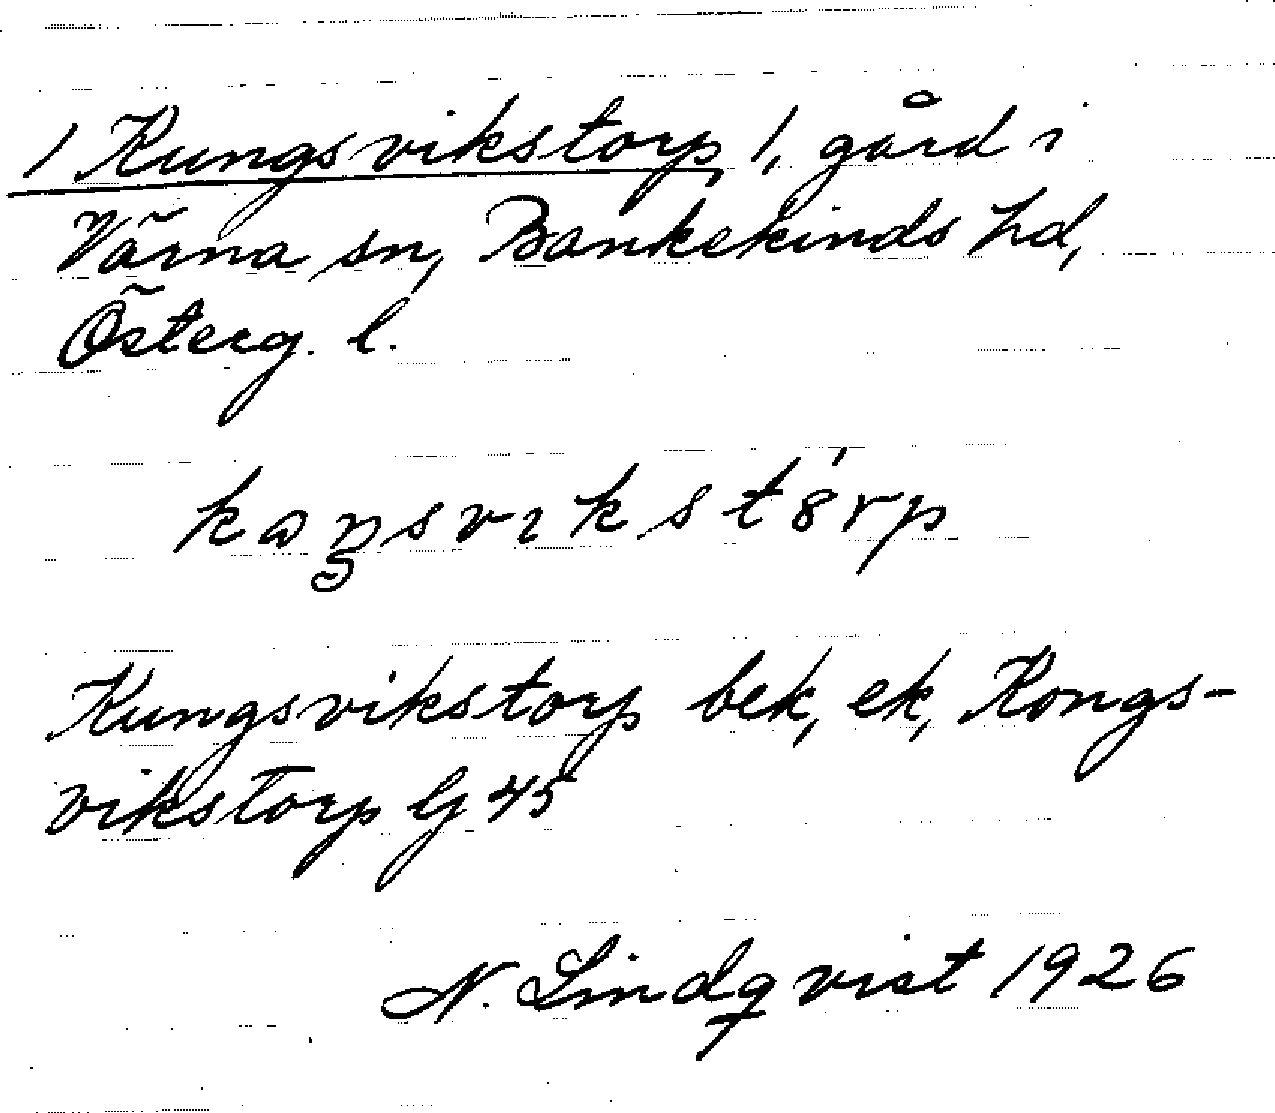 / Kungsvikstorp /, gård i
Värna sn, Bankekinds hd,
Österg. l.
kaŋsvikstȣ́rp
Kungsvikstorp bek, ek, Kongs-
vikstorp Gj 45
N. Lindqvist 1926